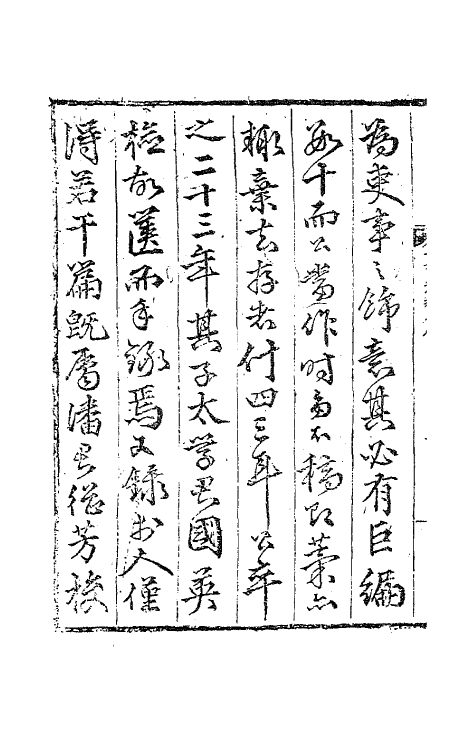 為吏事之餘意其必有巨編
數十而公當作時多不稿即藁亦
輙棄去存者什四三耳公卒
之二十三年其子太學君國英
檢故篋而手錄焉又錄於人僅
得若干篇既屬潘君從芳校